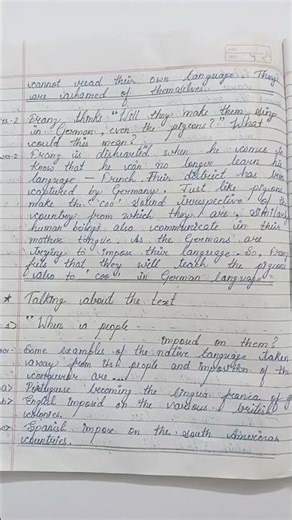 cannot read their own language. They
are ashamed of themselves.
Franz thinks "Will they make them sing
in German, even the pigeons?" What
could this mean?
Franz is disheartened when he comes to
know that he can no longer learn his
language — French. Their district has been
captured by Germany. Just like pigeons
make the 'coo' sound irrespective of the
country from which they are, similarly
human beings also communicate in their
mother tongue. As the Germans are
trying to impose their language. So, Franz
feels that they will teach the pigeons
also to 'coo' in German language.
* Talking about the text
1) "When a people
imposed on them?
Some examples of the native language taken
away from its people and imposition of the
conqueror are...
a) Portuguese becoming the lingua franca of
b) English imposed on the various British
colonies.
c) Spanish impose on the south American
countries.